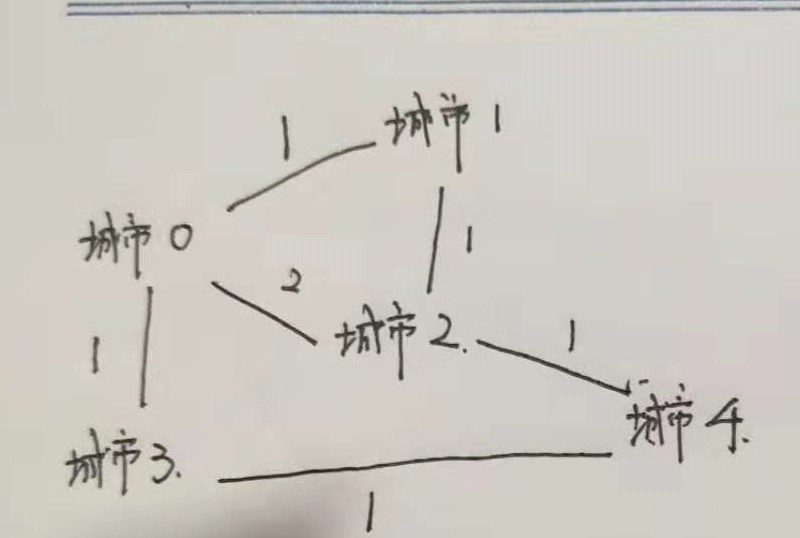 1
城市1
城市0
1
2
城市2.
1
1
城市4.
城市3.
1